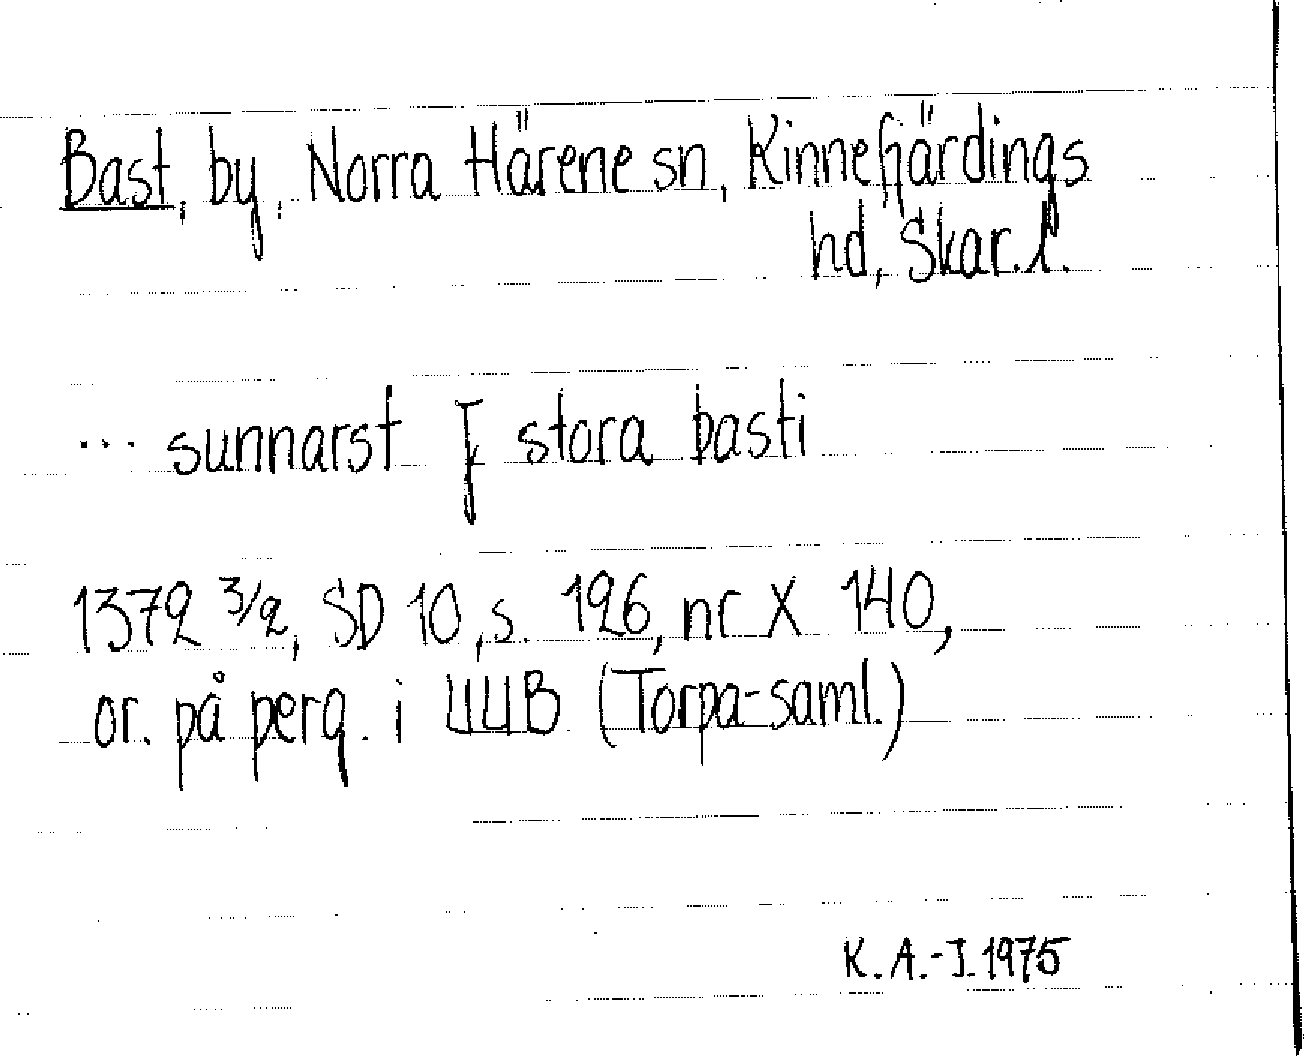 Bast, by, Norra Härene sn, Kinnefjärdings
hd, Skar. l.
... sunnarst j stora basti
1372 3/2, SD 10, s. 126, nr X 140,
or. på perg. i UUB (Torpa-saml.)
K. A.-J. 1975